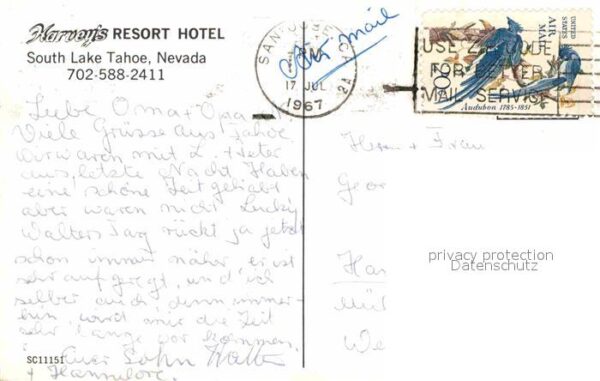 Harvey's RESORT HOTEL
South Lake Tahoe, Nevada
702-588-2411
Air mail
SAN JOSE
PM
17 JUL
1967
USE ZIP CODE
FOR BETTER
MAIL SERVICE
UNITED STATES
AIR MAIL
20c
Audubon 1785-1851
Liebe Oma + Opa
Viele Grüsse aus Tahoe
wir waren mit L. + Peter
aus, letzte Nacht. Haben
eine schöne Zeit gehabt
aber waren nicht Lucky
Walters Tag rückt ja jetzt
schon immer näher, er ist
sehr aufgeregt, und ich
selber auch, denn immer-
hin wird mir die Zeit
sehr lange vor kommen.
Euer Sohn Walter
+ Hannelore.
Herrn + Frau
Geor
Ha
Mü
We
privacy protection
Datenschutz
SC11151